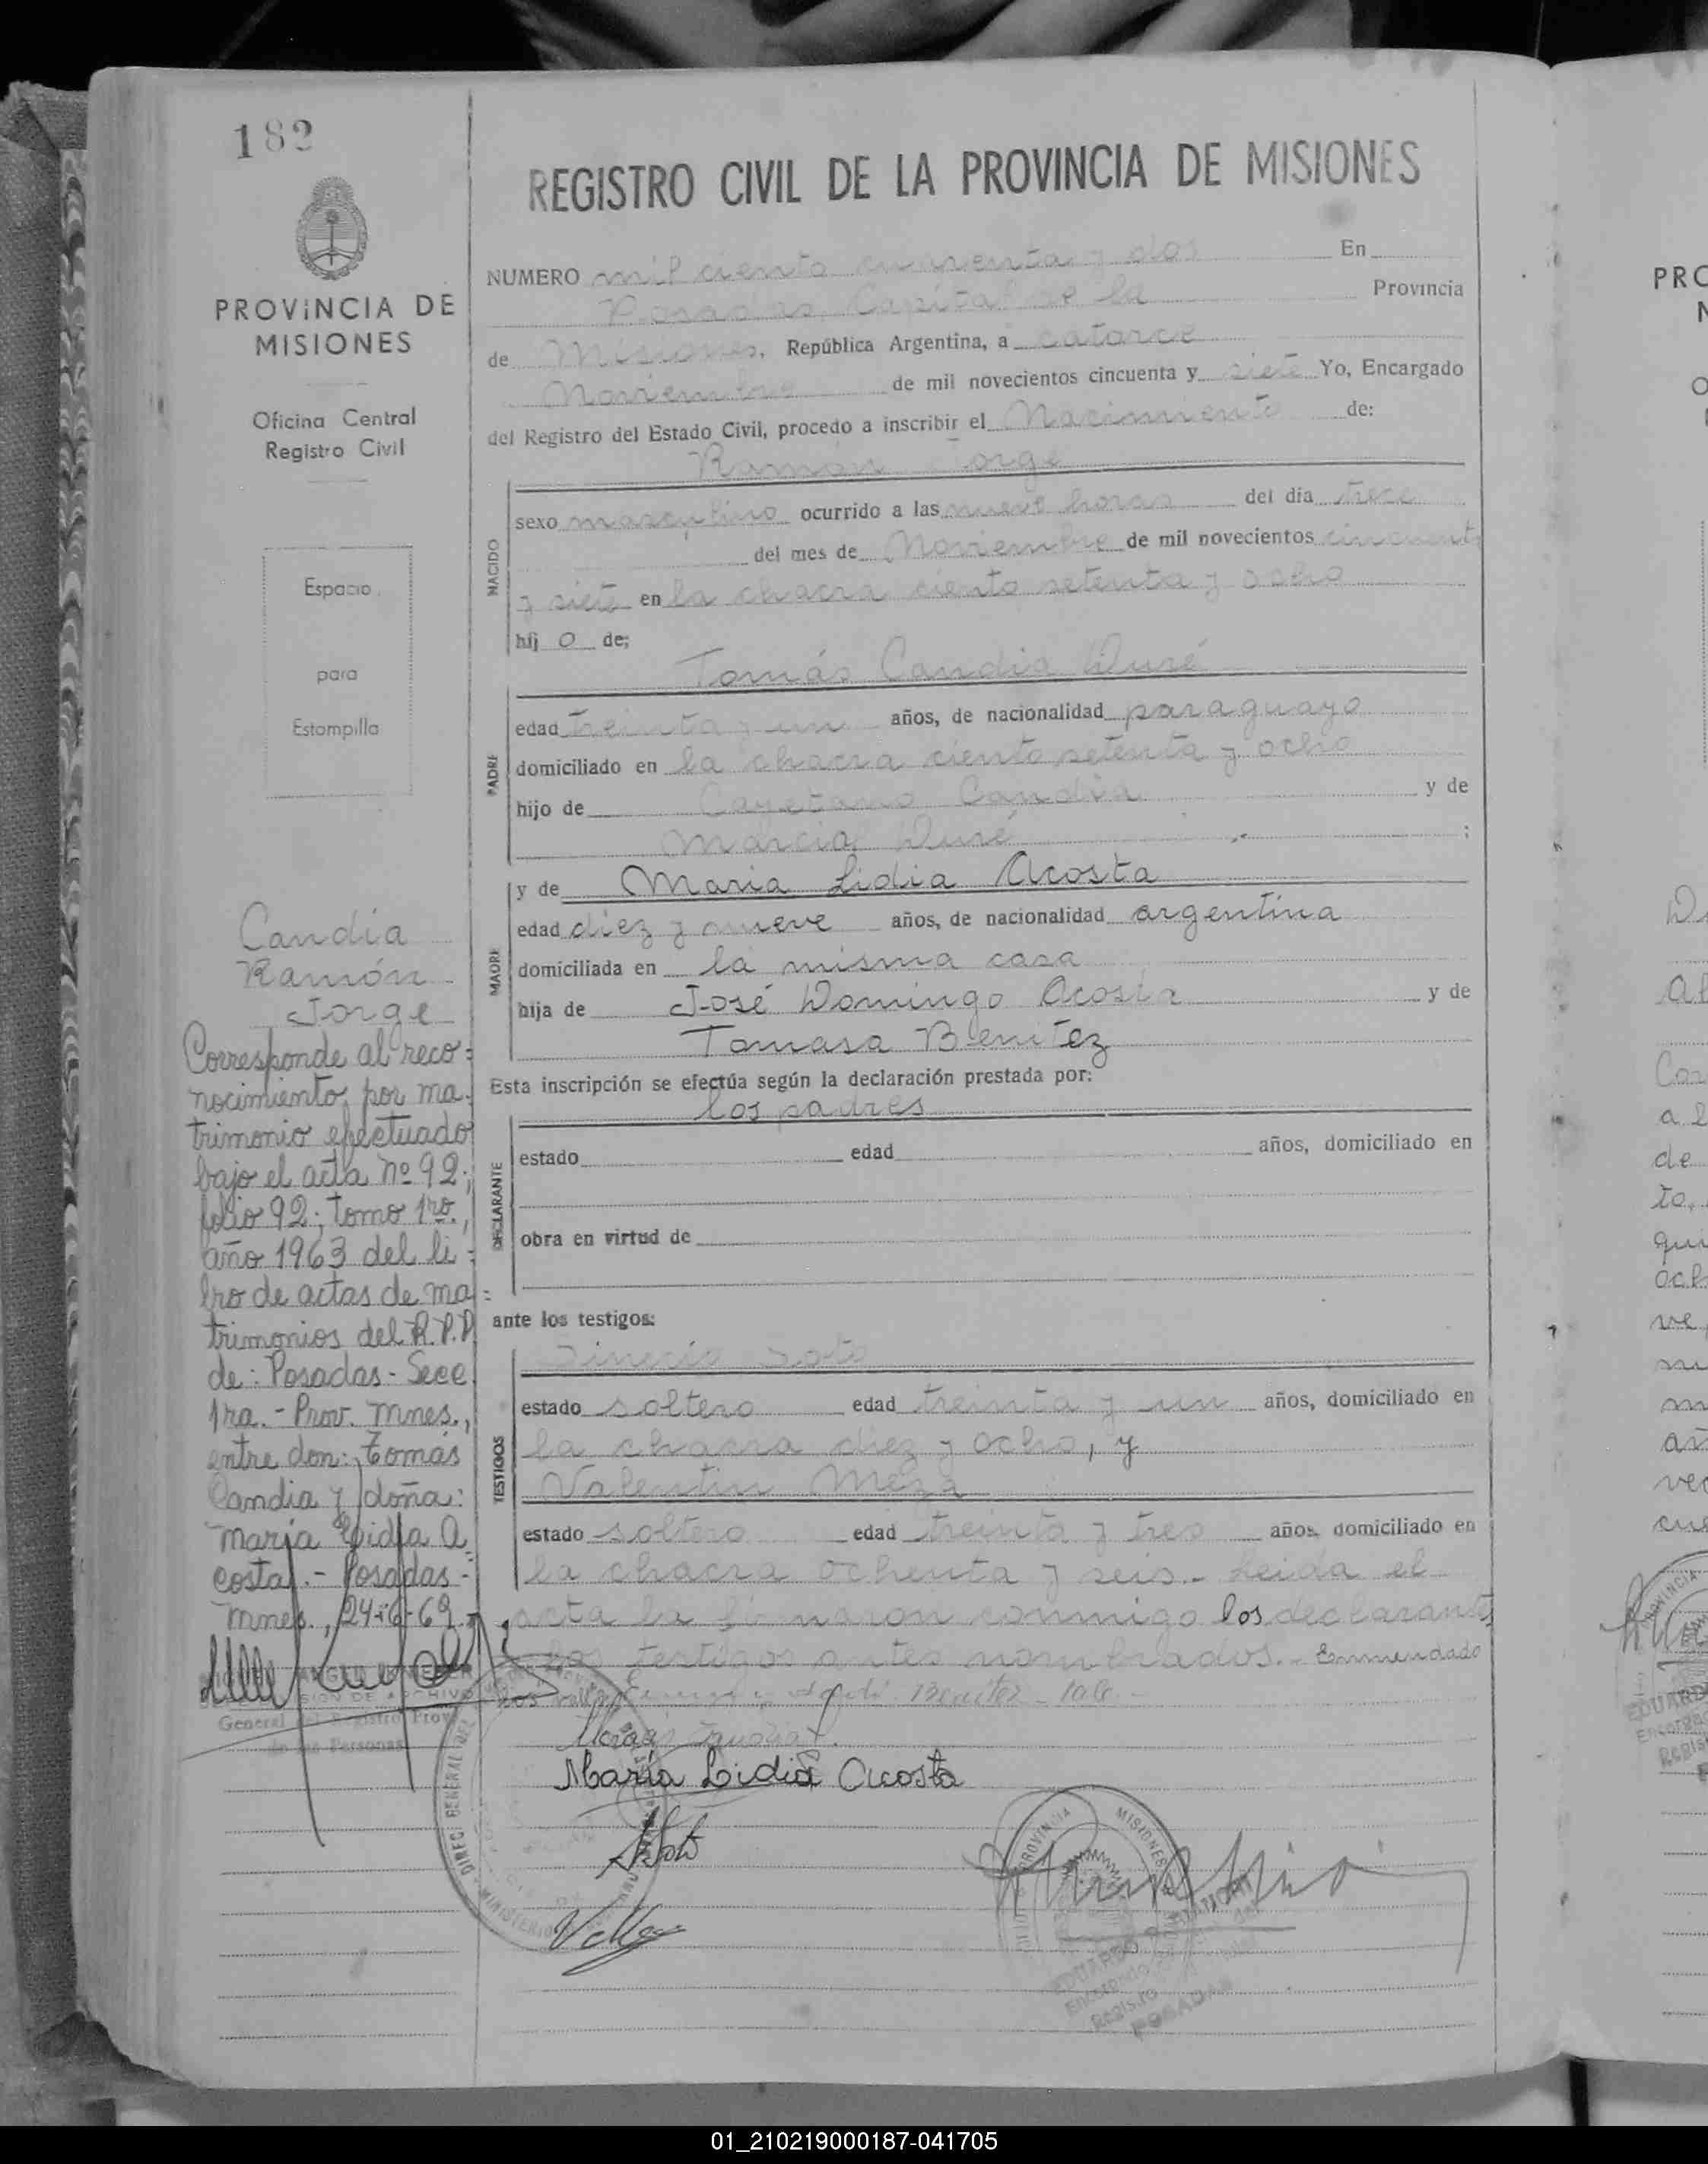 182
PROVINCIA DE
MISIONES
Oficina Central
Registro Civil
Espacio
para
Estampilla
Candia
Ramón
Jorge
Corresponde al reco=
nocimiento por ma-
trimonio efectuado
bajo el acta nº 92;
folio 92; tomo 1ro.,
año 1963 del li=
bro de actas de ma=
trimonios del R.P.P.
de: Posadas - Secc
1ra. - Prov. Mnes.,
entre don: Tomás
Candia y doña:
María Lidia A
costa. - Posadas -
Mnes., 24-6-69.
General del Registro Prov
de las Personas
REGISTRO CIVIL DE LA PROVINCIA DE MISIONES
NUMERO mil ciento cuarenta y dos En
Posadas, Capital de la Provincia
de Misiones, República Argentina, a catorce
Noviembre de mil novecientos cincuenta y siete Yo, Encargado
del Registro del Estado Civil, procedo a inscribir el Nacimiento de:
Ramón Jorge
NACIDO
sexo masculino ocurrido a las nueve horas del dia trece
del mes de Noviembre de mil novecientos cincuenta
y siete en la chacra ciento setenta y ocho
hij o de;
Tomás Candia Duré
PADRE
edad treinta y un años, de nacionalidad paraguayo
domiciliado en la chacra ciento setenta y ocho
hijo de Cayetano Candia y de
Marcia Duré ;
MADRE
y de Maria Lidia Acosta
edad diez y nueve años, de nacionalidad argentina
domiciliada en la misma casa
hija de José Domingo Acosta y de
Tomasa Benitez
Esta inscripción se efectúa según la declaración prestada por:
los padres
DECLARANTE
estado edad años, domiciliado en
obra en virtud de
ante los testigos:
TESTIGOS
Soto
estado soltero edad treinta y un años, domiciliado en
la chacra diez y ocho, y
Valentin Meza
estado soltero edad treinta y tres años, domiciliado en
la chacra ochenta y seis.- Leida el
acta la firmaron conmigo los declarantes
los testigos antes nombrados.- Enmendado
Benitez - Vale -
María Lidia Acosta
PROVINCIA MISIONES
Encargado
Registro
POSADAS
PRO
01_210219000187-041705